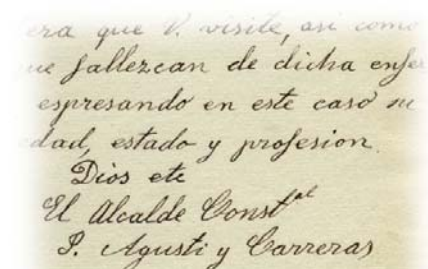 era que V. visite, asi como
ue fallezcan de dicha enfe
espresando en este caso su
edad, estado y profesion.
Dios etc
El Alcalde Const.al
P. Agusti y Carreras